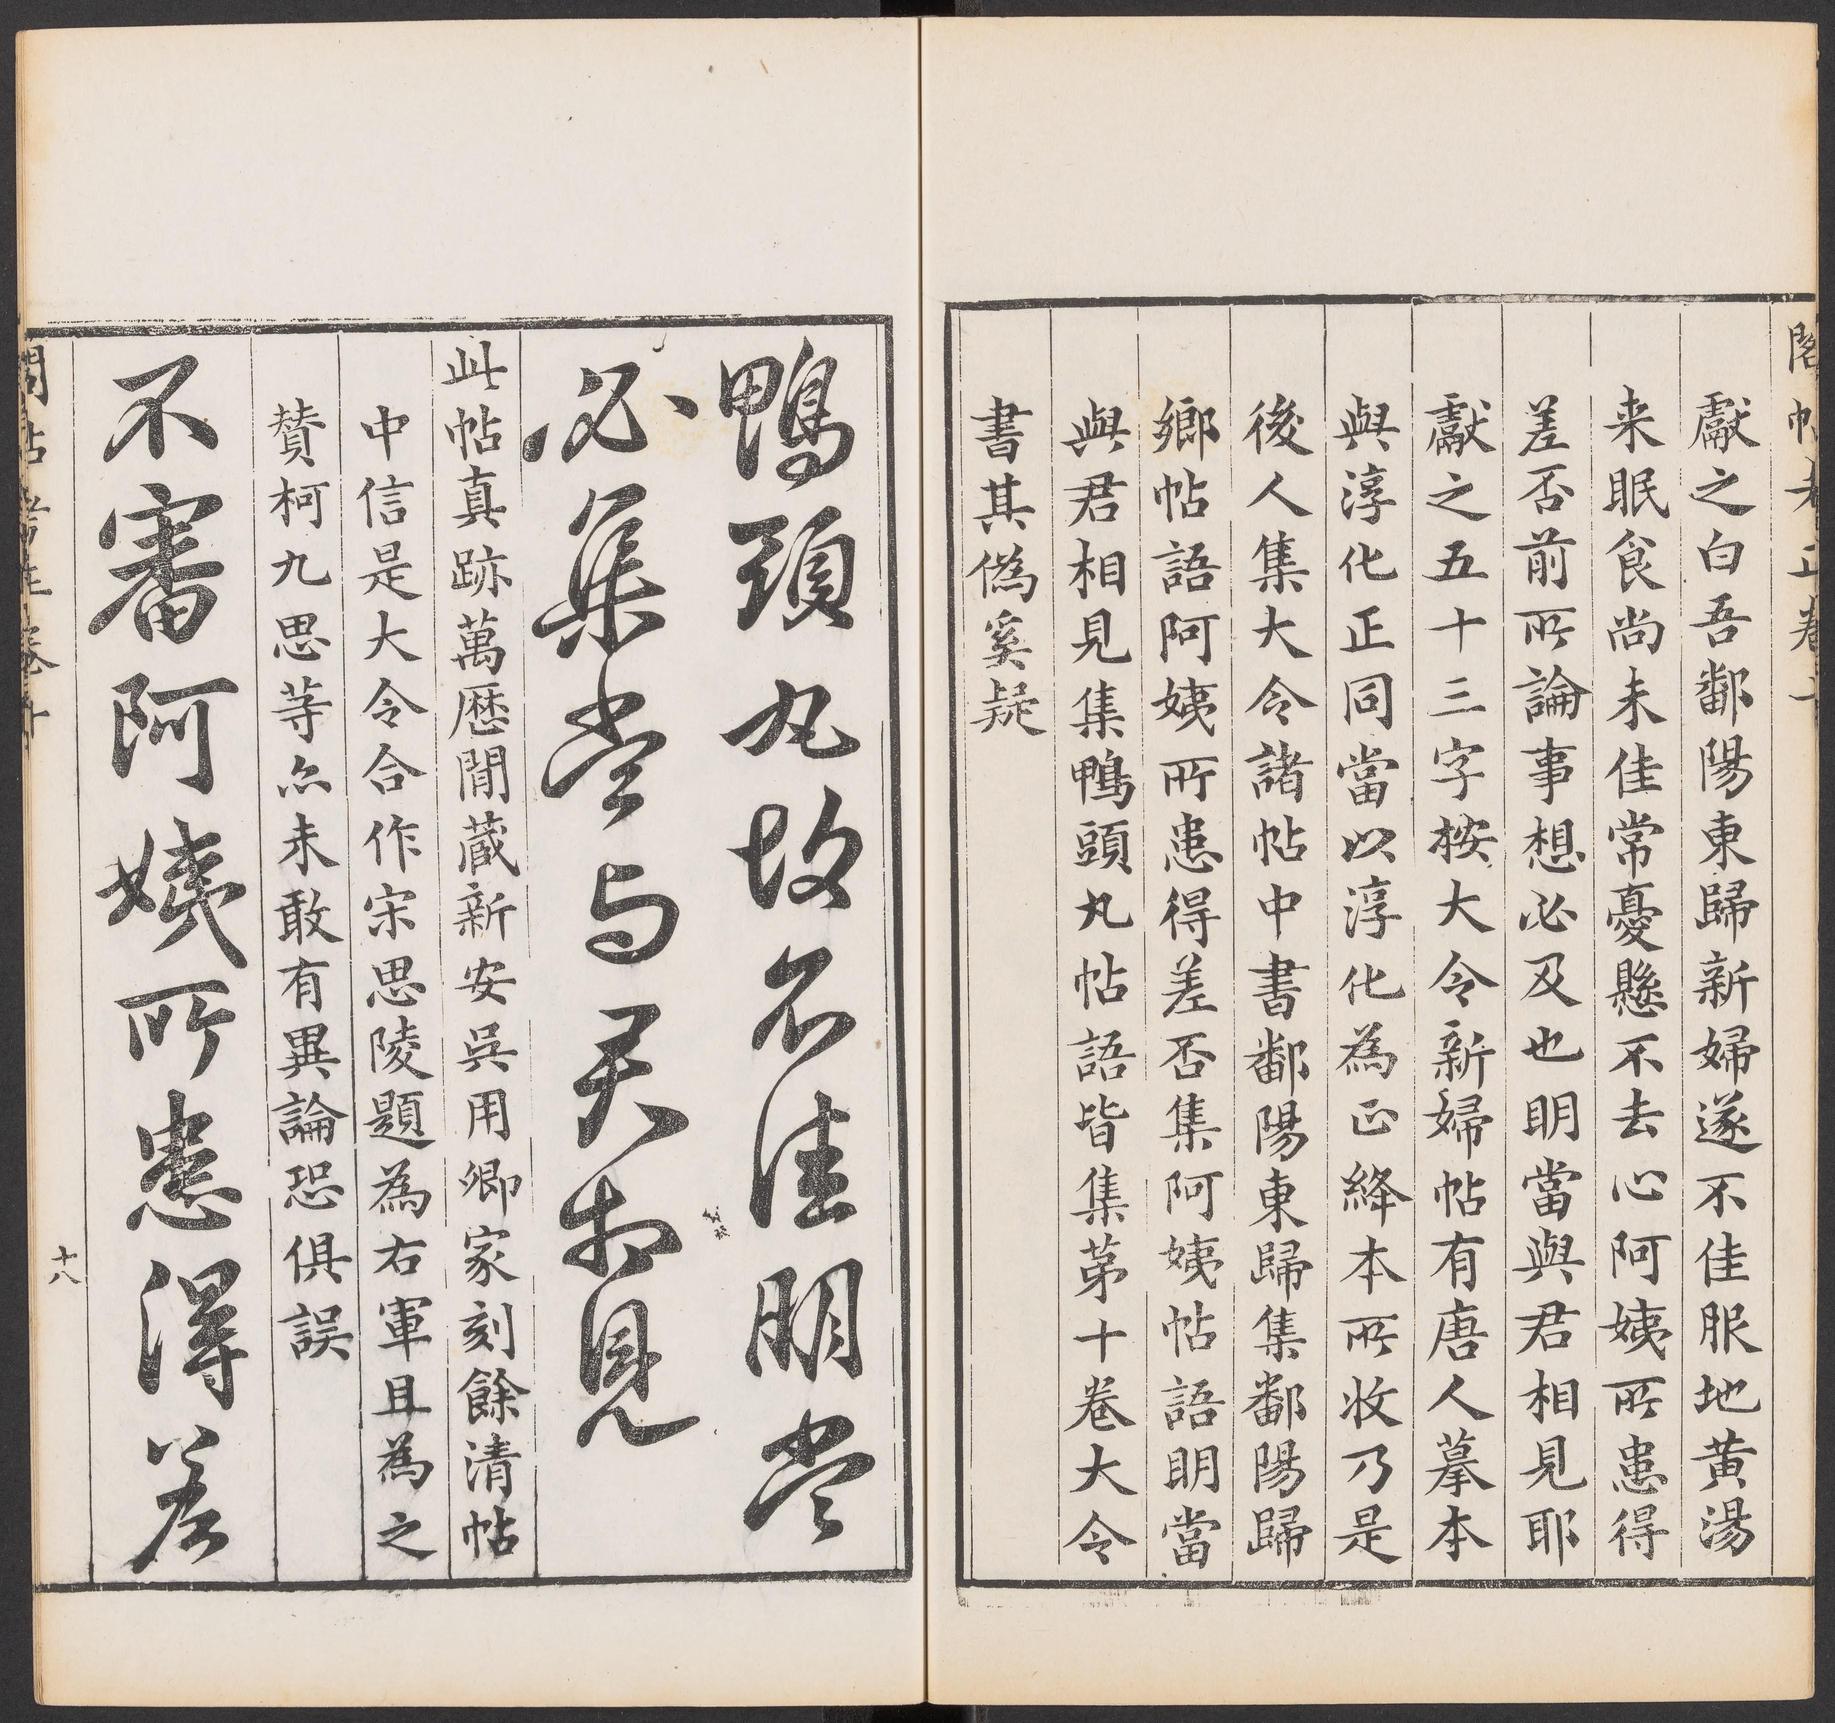 閣帖考正卷十
獻之白吾鄱陽東歸新婦遂不佳服地黃湯
来眠食尚未佳常憂懸不去心阿姨所患得
差否前所論事想必及也明當與君相見耶
獻之五十三字按大令新婦帖有唐人摹本
與淳化正同當以淳化為正絳本所收乃是
後人集大令諸帖中書鄱陽東歸集鄱陽歸
鄉帖語阿姨所患得差否集阿姨帖語明當
與君相見集鴨頭丸帖語皆集苐十卷大令
書其僞奚疑
鴨頭丸故不佳明當
必集當与君相見
此帖真跡萬歷間藏新安吳用卿家刻餘清帖
中信是大令合作宋思陵題為右軍且為之
贊柯九思等亦未敢有異論恐俱誤
不審阿姨所患得差
閣帖考正卷十
十八